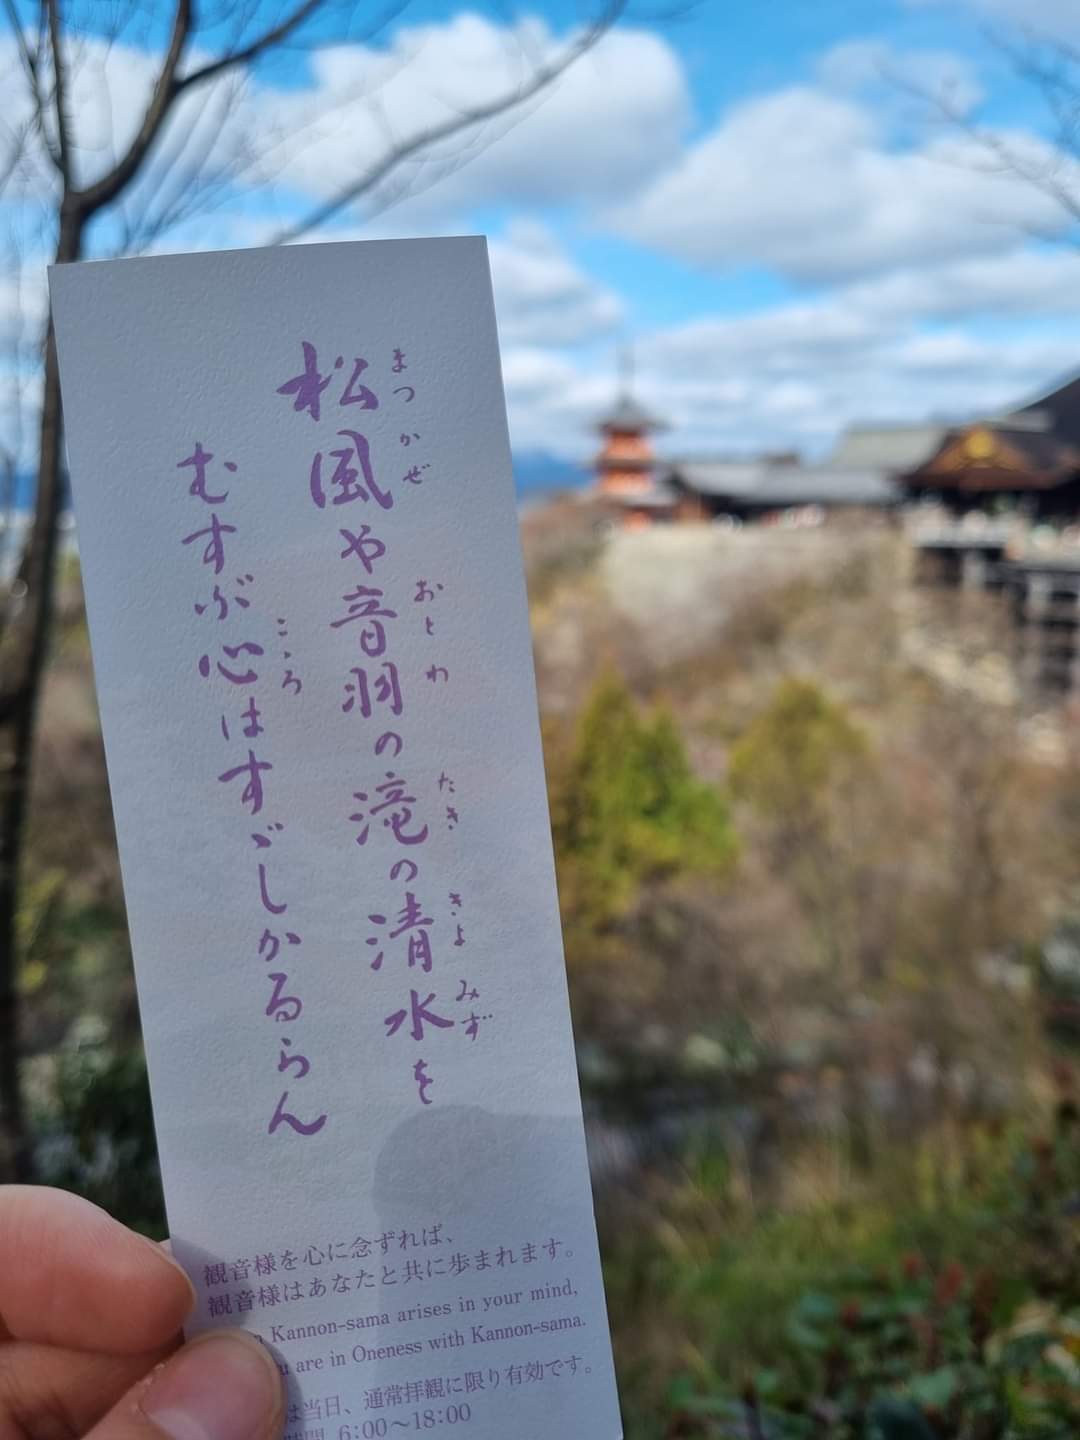 松風や音羽の滝の清水を
まつかぜ おとわ たき きよみず
むすぶ心はすゞしかるらん
こゝろ
観音様を心に念ずれば、
観音様はあなたと共に歩まれます。
Kannon-sama arises in your mind,
are in Oneness with Kannon-sama.
は当日、通常拝観に限り有効です。
6:00〜18:00